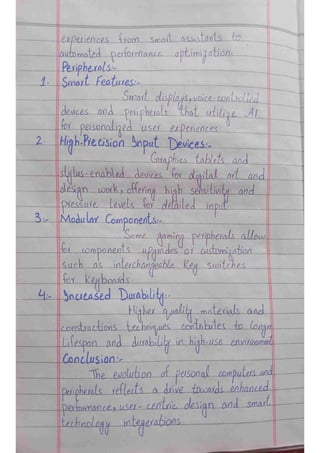 experiences from smart assistants to
automated performance optimization.
Peripherals:-
1. Smart Features:-
Smart displays, voice-controlled
devices and peripherals that utilize AI
for personalized user experiences.
2. High-Precision Input Devices:-
Graphics tablets and
stylus-enabled devices for digital art and
design work, offering high sensitivity and
pressure levels for detailed input.
3:- Modular Components:-
Some gaming peripherals allow
for components upgrades or customization
such as interchangeable key switches
for keyboards.
4:- Increased Durability:-
Higher quality materials and
constructions techniques contributes to longer
lifespan and durability in high-use environment
Conclusion:-
The evolution of personal computers and
peripherals reflects a drive towards enhanced
performance, user-centric design and smart
technology integerations.